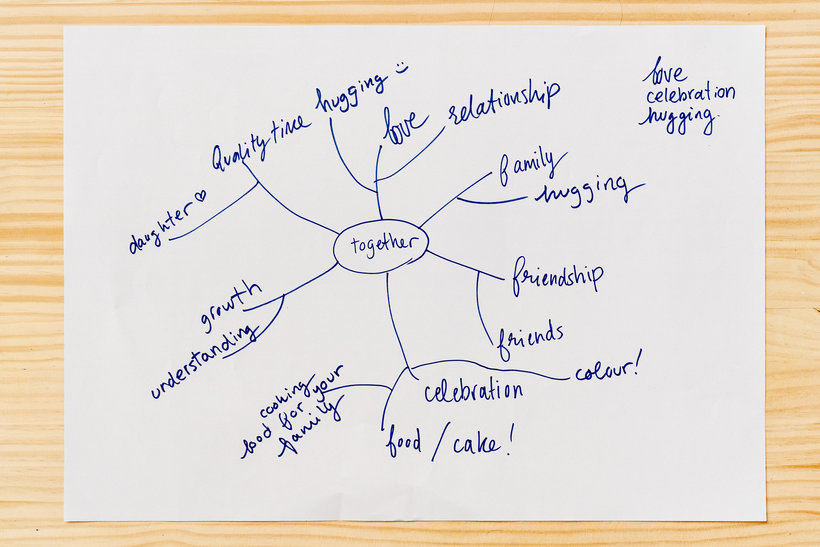 hugging
love
relationship
Quality time
family
hugging
daughter
together
friendship
friends
growth
understanding
celebration
colour!
cooking
food for your
family
food / cake!
love
celebration
hugging.